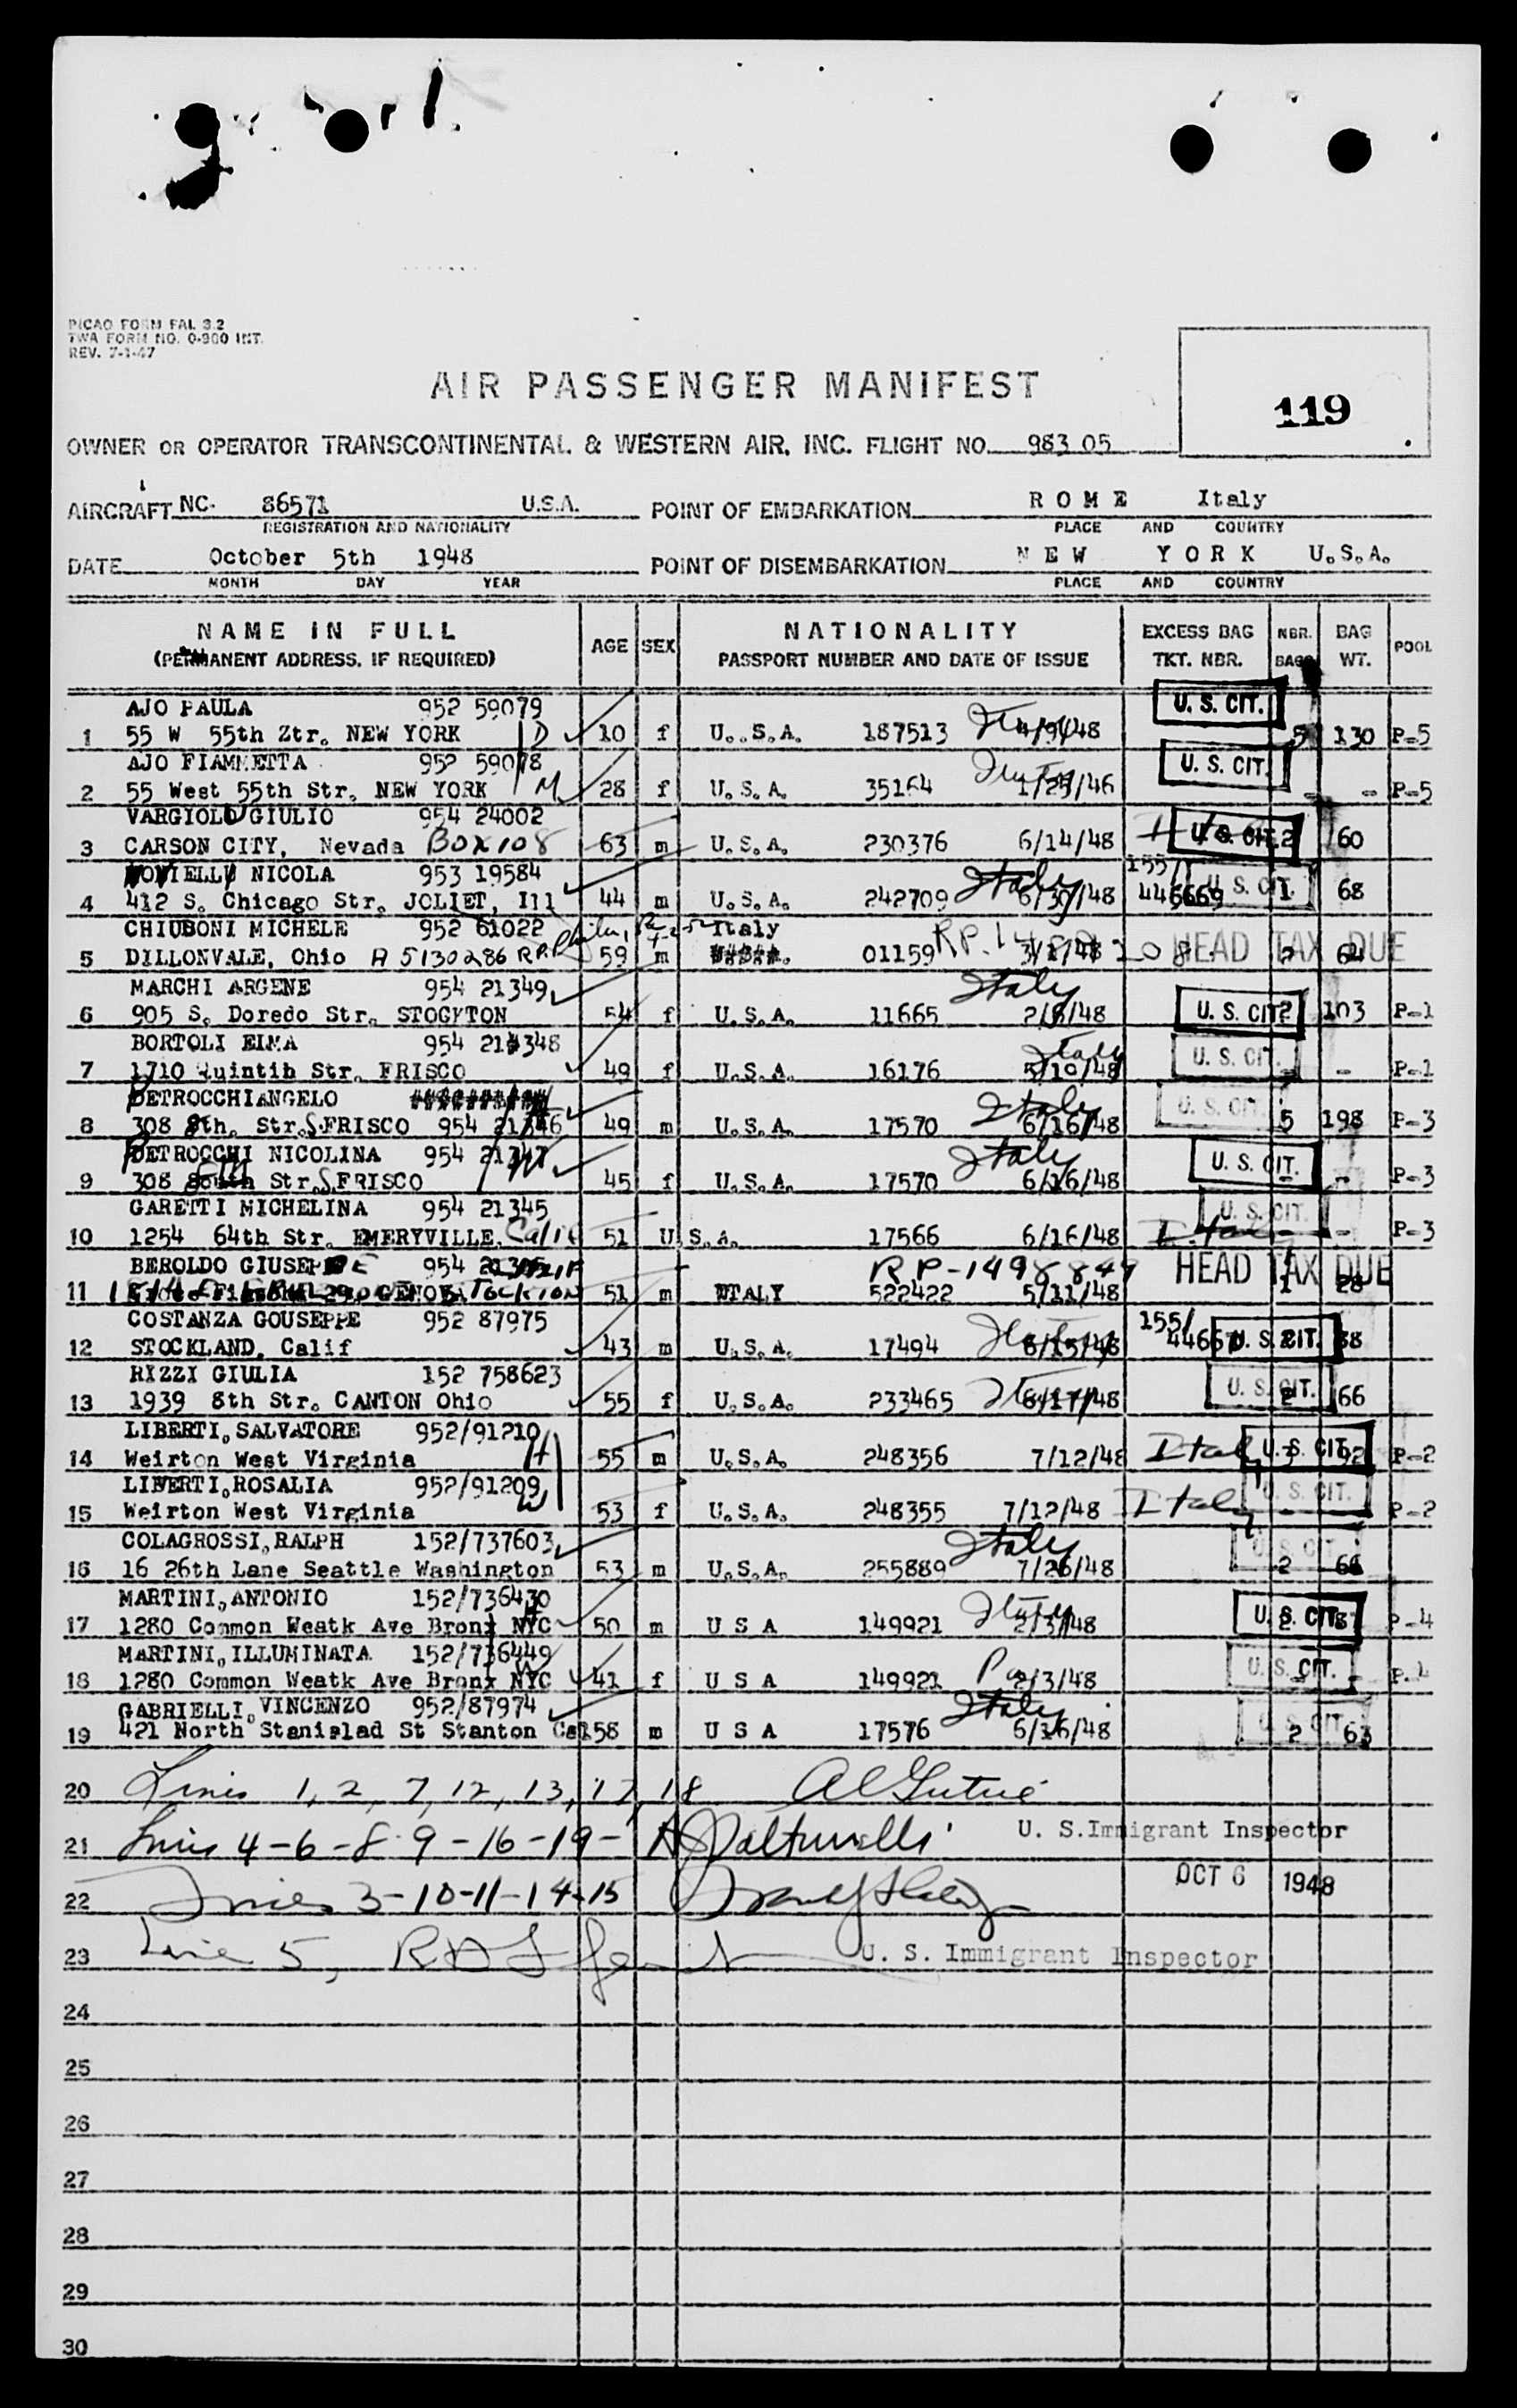 PICAO FORM FAL 3.2
TWA FORM NO. 0-300 INT.
REV. 7-1-47
AIR PASSENGER MANIFEST
119
OWNER OR OPERATOR TRANSCONTINENTAL & WESTERN AIR, INC. FLIGHT NO. 983 05
AIRCRAFT NC. 86571 U.S.A. POINT OF EMBARKATION R O M E Italy
REGISTRATION AND NATIONALITY PLACE AND COUNTRY
DATE October 5th 1948 POINT OF DISEMBARKATION N E W Y O R K U.S.A.
MONTH DAY YEAR PLACE AND COUNTRY
NAME IN FULL AGE SEX NATIONALITY EXCESS BAG NBR. BAG POOL
(PERMANENT ADDRESS, IF REQUIRED) PASSPORT NUMBER AND DATE OF ISSUE TKT. NBR. BAGS WT.
AJO PAULA 952 59079 U. S. CIT.
1 55 W 55th Ztr. NEW YORK D 10 f U.S.A. 187513 4/9/48 5 130 P-5
AJO FIAMMETTA 952 59078 U. S. CIT.
2 55 West 55th Str. NEW YORK M 28 f U.S.A. 35164 1/25/46 - - P-5
VARGIOLU GIULIO 954 24002
3 CARSON CITY, Nevada BOX 108 63 m U.S.A. 230376 6/14/48 U. S. CIT. 2 60
NICOLA 953 19584 Italy 155/
4 412 S. Chicago Str. JOLIET, Ill 44 m U.S.A. 242709 6/30/48 446669 U. S. CIT. 1 68
CHIUBONI MICHELE 952 61022 Italy
5 DILLONVALE, Ohio A 5130286 59 m 01159 HEAD TAX DUE 2 64
MARCHI ARGENE 954 21349 Italy
6 905 S. Doredo Str. STOGKTON 54 f U.S.A. 11665 2/6/48 U. S. CIT. 2 103 P-1
BORTOLI ELMA 954 21348 Italy U. S. CIT.
7 1710 Quintih Str. FRISCO 49 f U.S.A. 16176 5/10/48 - - P-1
PETROCCHI ANGELO Italy U. S. CIT.
8 308 8th. Str. S.FRISCO 954 21346 49 m U.S.A. 17570 6/16/48 5 198 P-3
PETROCCHI NICOLINA 954 21347 W Italy U. S. CIT.
9 308 8th Str. S.FRISCO 45 f U.S.A. 17570 6/16/48 - - P-3
GARETTI MICHELINA 954 21345 U. S. CIT.
10 1254 64th Str. EMERYVILLE, Calif 51 U.S.A. 17566 6/16/48 Italy - P-3
BEROLDO GIUSEPPE 954 RP-1498849 HEAD TAX DUE
11 STOCKTON 51 m ITALY 522422 5/11/48 1 28
COSTANZA GOUSEPPE 952 87975 155/
12 STOCKLAND, Calif 43 m U.S.A. 17494 6/15/48 U. S. CIT.
RIZZI GIULIA 152 758623 U. S. CIT.
13 1939 8th Str. CANTON Ohio 55 f U.S.A. 233465 6/17/48 2 66
LIBERTI, SALVATORE 952/91210
14 Weirton West Virginia H 55 m U.S.A. 248356 7/12/48 Italy U. S. CIT. P-2
LIBERTI, ROSALIA 952/91209 U. S. CIT.
15 Weirton West Virginia W 53 f U.S.A. 248355 7/12/48 Italy - - P-2
COLAGROSSI, RALPH 152/737603 Italy U. S. CIT.
16 16 26th Lane Seattle Washington 53 m U.S.A. 255889 7/26/48 2 66
MARTINI, ANTONIO 152/736430 Italy U. S. CIT.
17 1280 Common Weatk Ave Bronx NYC 50 m U S A 149921 2/3/48 P-4
MARTINI, ILLUMINATA 152/736449 U. S. CIT.
18 1280 Common Weatk Ave Bronx NYC 41 f U S A 149921 2/3/48 P-4
GABRIELLI, VINCENZO 952/87974 Italy U. S. CIT.
19 421 North Stanislad St Stanton Cal 58 m U S A 17576 6/16/48 2 63
20 Lines 1, 2, 7, 12, 13, 17, 18
21 Lines 4-6-8-9-16-19- U. S. Immigrant Inspector
22 Lines 3-10-11-14-15 OCT 6 1948
23 Line 5, U. S. Immigrant Inspector
24
25
26
27
28
29
30